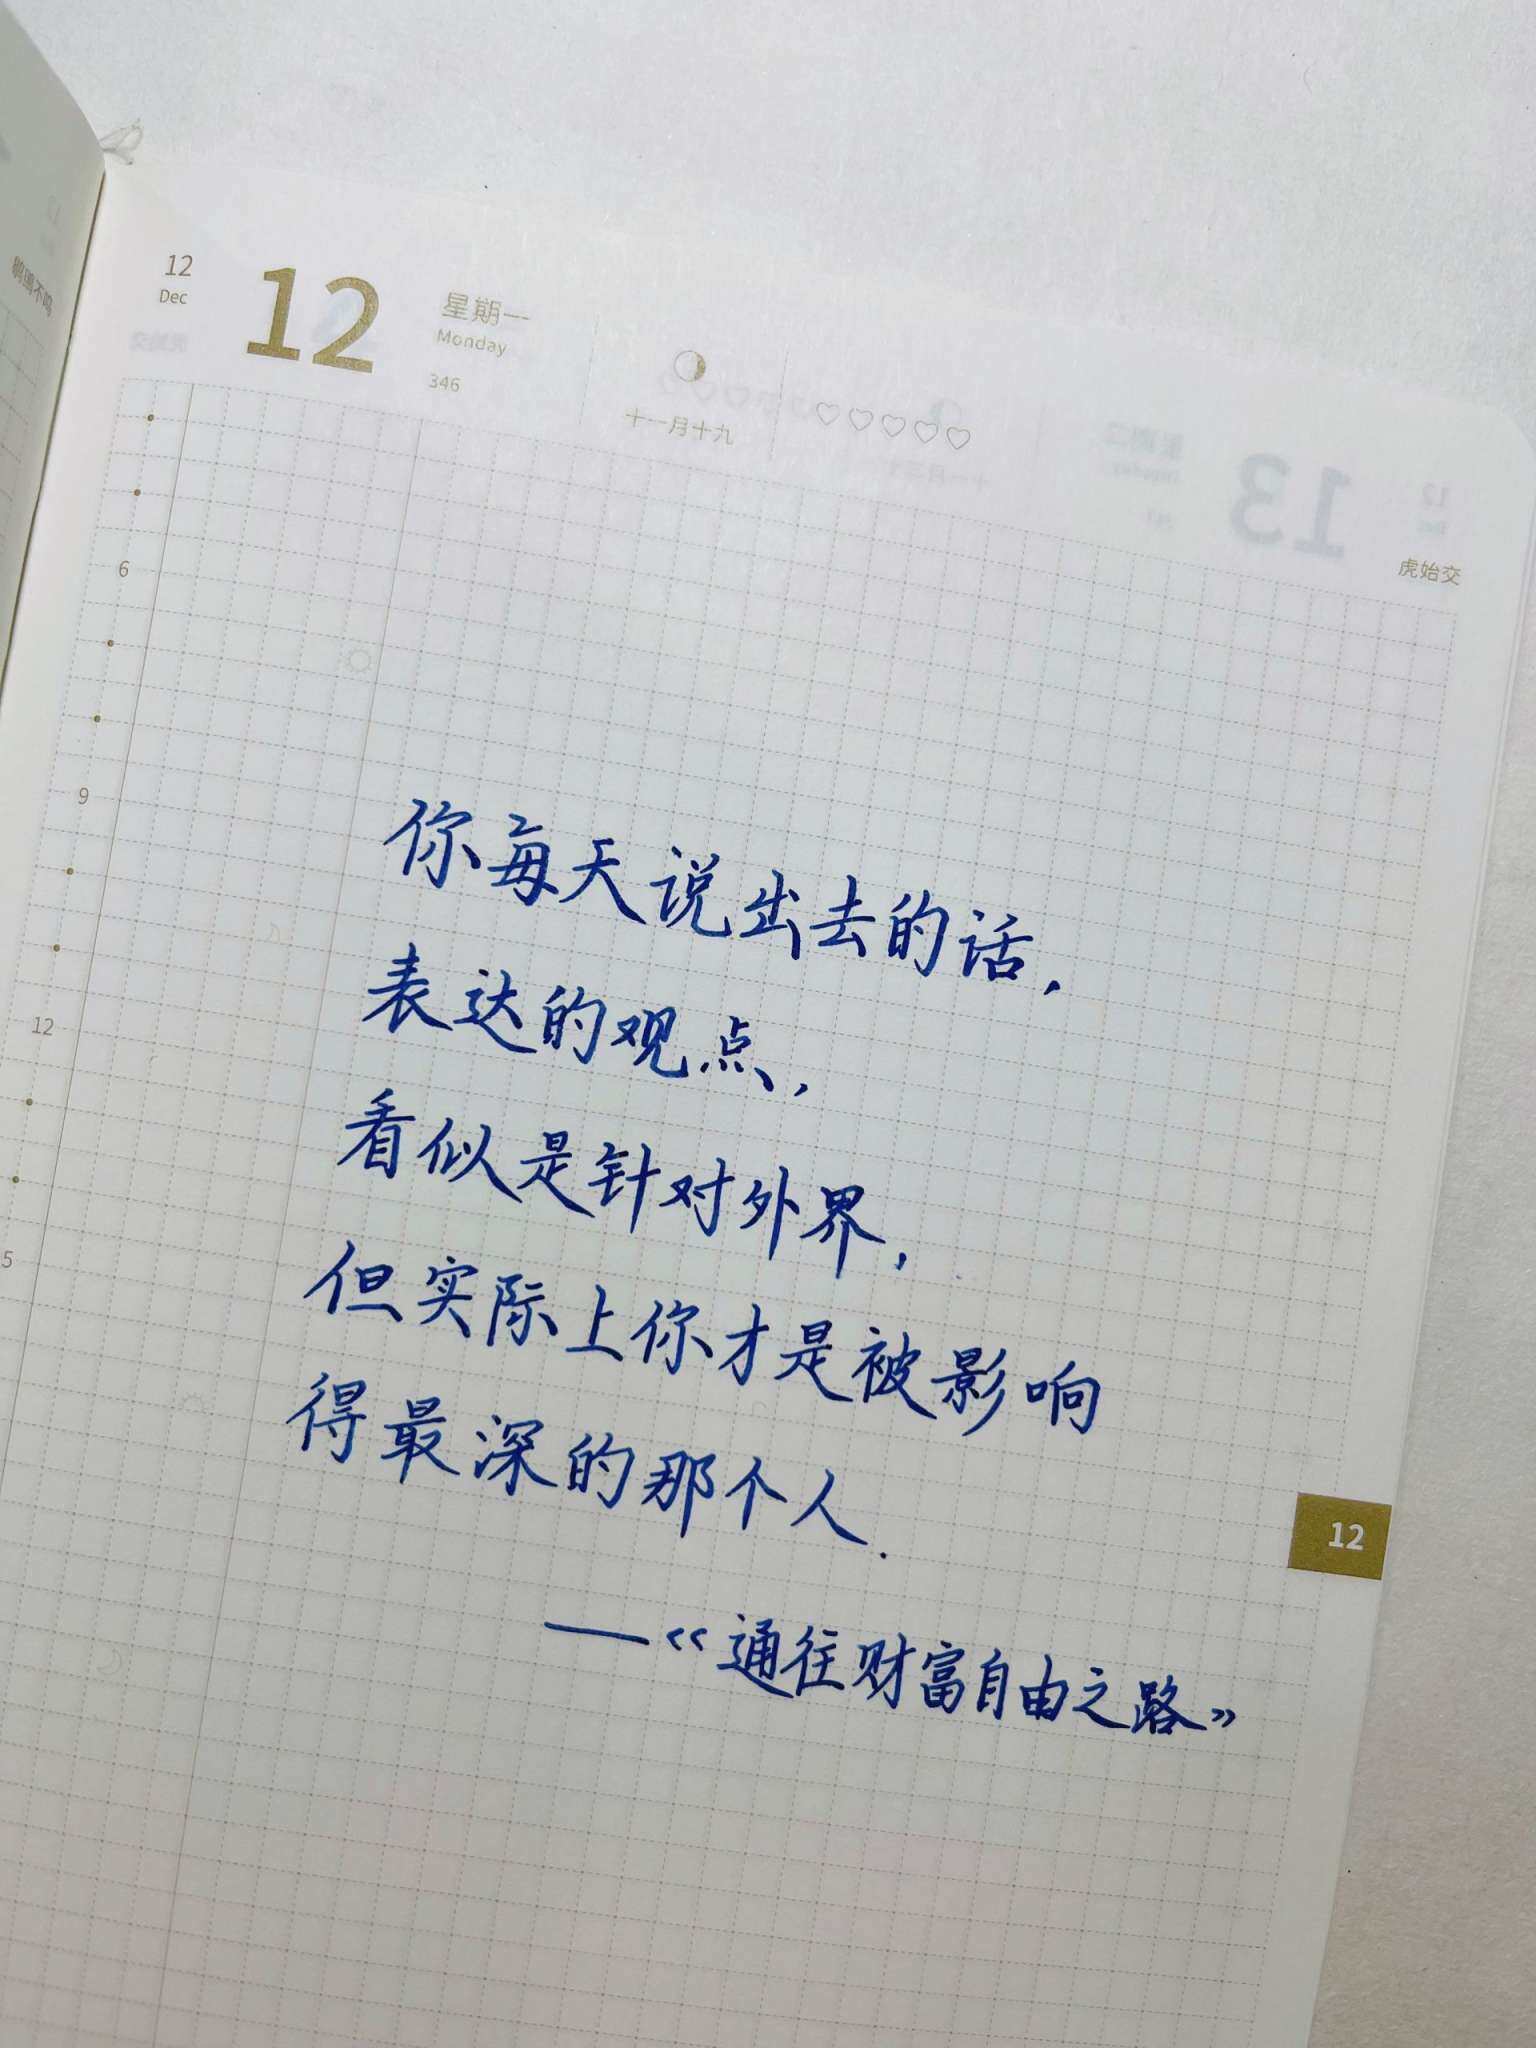 鹖鴠不鸣
12
Dec
12
星期一
Monday
346
十一月十九
虎始交
6
9
12
5
你每天说出去的话，
表达的观点，
看似是针对外界，
但实际上你才是被影响
得最深的那个人.
12
——《通往财富自由之路》